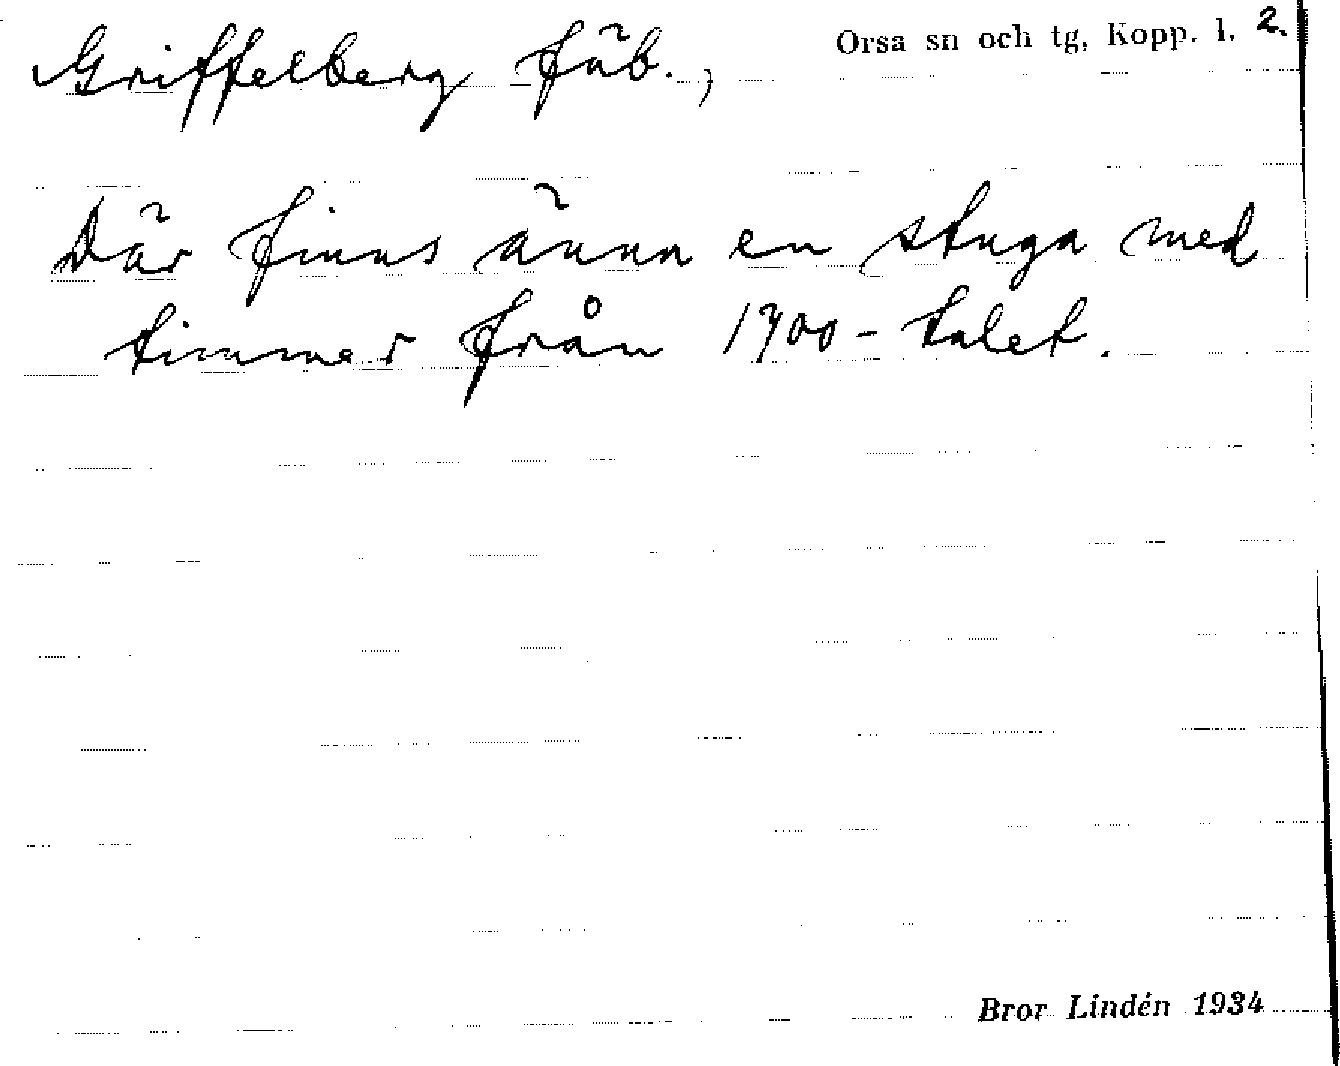 Griffelberg fäb., Orsa sn och tg, Kopp. l. 2.
Där finns ännu en stuga med
timmer från 1700-talet.
Bror Lindén 1934